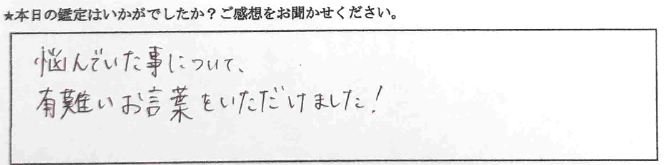 ★本日の鑑定はいかがでしたか？ご感想をお聞かせください。
悩んでいた事について、
有難いお言葉をいただけました！